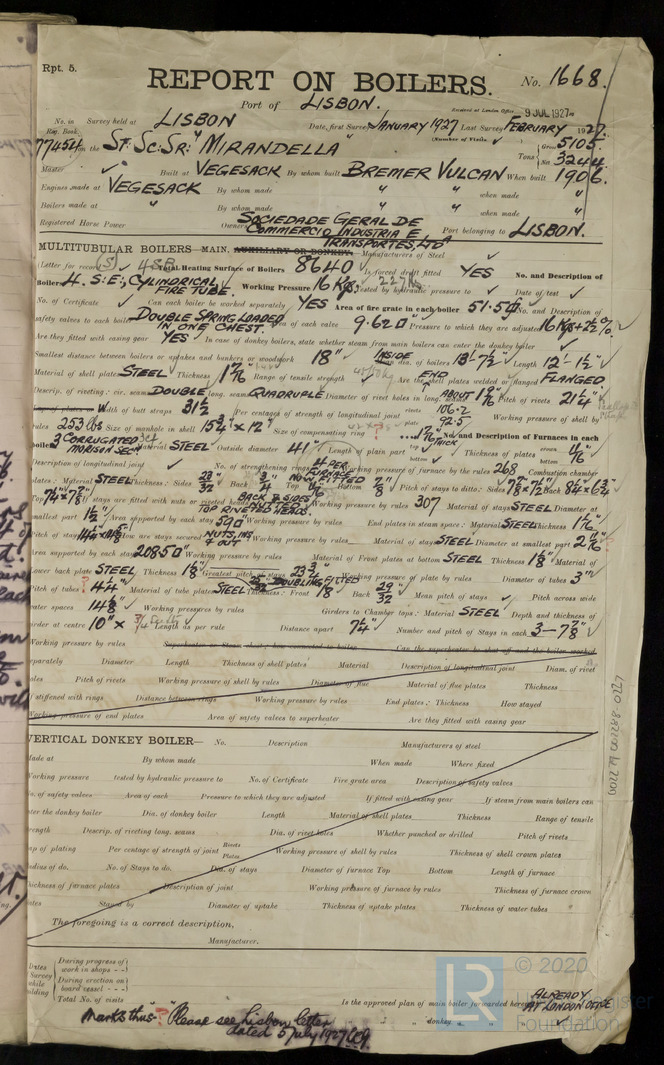 Rpt. 5.
REPORT ON BOILERS.
No. 1668.
Port of LISBON.
Received at London Office 9 JUL 1927
No. in Survey held at LISBON Date, first Survey JANUARY 1927 Last Survey FEBRUARY 1927.
Reg. Book. (Number of Visits
77454 on the ST. SC: SR: "MIRANDELLA" Tons Gross 5105
Net 3244
Master Built at VEGESACK By whom built BREMER VULCAN When built 1906.
Engines made at VEGESACK By whom made " " when made "
Boilers made at " By whom made " " when made "
Registered Horse Power Owners SOCIEDADE GERAL DE COMMERCIO INDUSTRIA E TRANSPORTES, LTDA Port belonging to LISBON.
MULTITUBULAR BOILERS — MAIN, AUXILIARY OR DONKEY. Manufacturers of Steel
(Letter for record (S) Total Heating Surface of Boilers 8640 Is forced draft fitted YES No. and Description of
Boilers 4. S.E.; CYLINDRICAL FIRE TUBE. Working Pressure 16 Kgs. Tested by hydraulic pressure to Date of test
No. of Certificate Can each boiler be worked separately YES Area of fire grate in each boiler 51.5 No. and Description of
safety valves to each boiler DOUBLE SPRING LOADED IN ONE CHEST. Area of each valve 9.62 □" Pressure to which they are adjusted 16 Kgs + 2½ %.
Are they fitted with easing gear YES In case of donkey boilers, state whether steam from main boilers can enter the donkey boiler
Smallest distance between boilers or uptakes and bunkers or woodwork 18" INSIDE dia. of boilers 13'-7½" Length 12'-1½"
Material of shell plates STEEL Thickness 1 7/16 Range of tensile strength Are the shell plates welded or flanged END FLANGED
Descrip. of riveting: cir. seams DOUBLE long. seams QUADRUPLE Diameter of rivet holes in long. seams ABOUT 1 9/16 Pitch of rivets 21¼"
Lap of plates or Width of butt straps 31½ Per centages of strength of longitudinal joint rivets 106.2 plate 92.5 Working pressure of shell by
rules 253 lbs Size of manhole in shell 15¾" x 12" Size of compensating ring ? No. and Description of Furnaces in each
boiler 3 CORRUGATED MORISON SECN Material STEEL Outside diameter 41" Length of plain part top bottom Thickness of plates crown bottom 11/16
Description of longitudinal joint No. of strengthening rings Working pressure of furnace by the rules 268 Combustion chamber
plates: Material STEEL Thickness: Sides 23/32 Back 3/4 Top 11/16 Bottom 7/8 Pitch of stays to ditto: Sides 7⅞ x 7½ Back 8¼ x 6¾
Top 7¾ x 7⅞ If stays are fitted with nuts or riveted heads BACK & SIDES NUTS FITTED TOP RIVETED HEADS. Working pressure by rules 307 Material of stays STEEL Diameter at
smallest part 1½" Area supported by each stay 59□ Working pressure by rules End plates in steam space: Material STEEL Thickness 1 1/16
Pitch of stays How are stays secured NUTS, INS & OUT Working pressure by rules Material of stays STEEL Diameter at smallest part 2 11/16
Area supported by each stay 208.5 □" Working pressure by rules Material of Front plates at bottom STEEL Thickness 1⅛ Material of
Lower back plate STEEL Thickness 1⅛ Greatest pitch of stays 23¾ DOUBLING FITTED Working pressure of plate by rules Diameter of tubes 3"
Pitch of tubes ? 4¼" Material of tube plates STEEL Thickness: Front 1⅛ Back 29/32 Mean pitch of stays Pitch across wide
water spaces 14⅛ Working pressures by rules Girders to Chamber tops: Material STEEL Depth and thickness of
girder at centre 10" x Length as per rule Distance apart 7¼" Number and pitch of Stays in each 3—7⅞"
Working pressure by rules Superheater or Steam chest; how connected to boiler Can the superheater be shut off and the boiler worked
separately Diameter Length Thickness of shell plates Material Description of longitudinal joint Diam. of rivet
holes Pitch of rivets Working pressure of shell by rules Diameter of flue Material of flue plates Thickness
If stiffened with rings Distance between rings Working pressure by rules End plates: Thickness How stayed
Working pressure of end plates Area of safety valves to superheater Are they fitted with easing gear
VERTICAL DONKEY BOILER— No. Description Manufacturers of steel
Made at By whom made When made Where fixed
Working pressure tested by hydraulic pressure to No. of Certificate Fire grate area Description of safety valves
No. of safety valves Area of each Pressure to which they are adjusted If fitted with easing gear If steam from main boilers can
enter the donkey boiler Dia. of donkey boiler Length Material of shell plates Thickness Range of tensile
strength Descrip. of riveting long. seams Dia. of rivet holes Whether punched or drilled Pitch of rivets
Lap of plating Per centage of strength of joint Rivets Plates Working pressure of shell by rules Thickness of shell crown plates
Radius of do. No. of Stays to do. Dia. of stays Diameter of furnace Top Bottom Length of furnace
Thickness of furnace plates Description of joint Working pressure of furnace by rules Thickness of furnace crown
plates Stayed by Diameter of uptake Thickness of uptake plates Thickness of water tubes
The foregoing is a correct description,
Manufacturer.
Dates of Survey while building During progress of work in shops - -
During erection on board vessel - -
Total No. of visits
Is the approved plan of main boiler forwarded herewith ALREADY AT LONDON OFFICE
" " " donkey " "
Marks thus "?" Please see Lisbon letter
dated 5 July 1927
002200-002288-0227
LR © 2020
Lloyd's Register Foundation